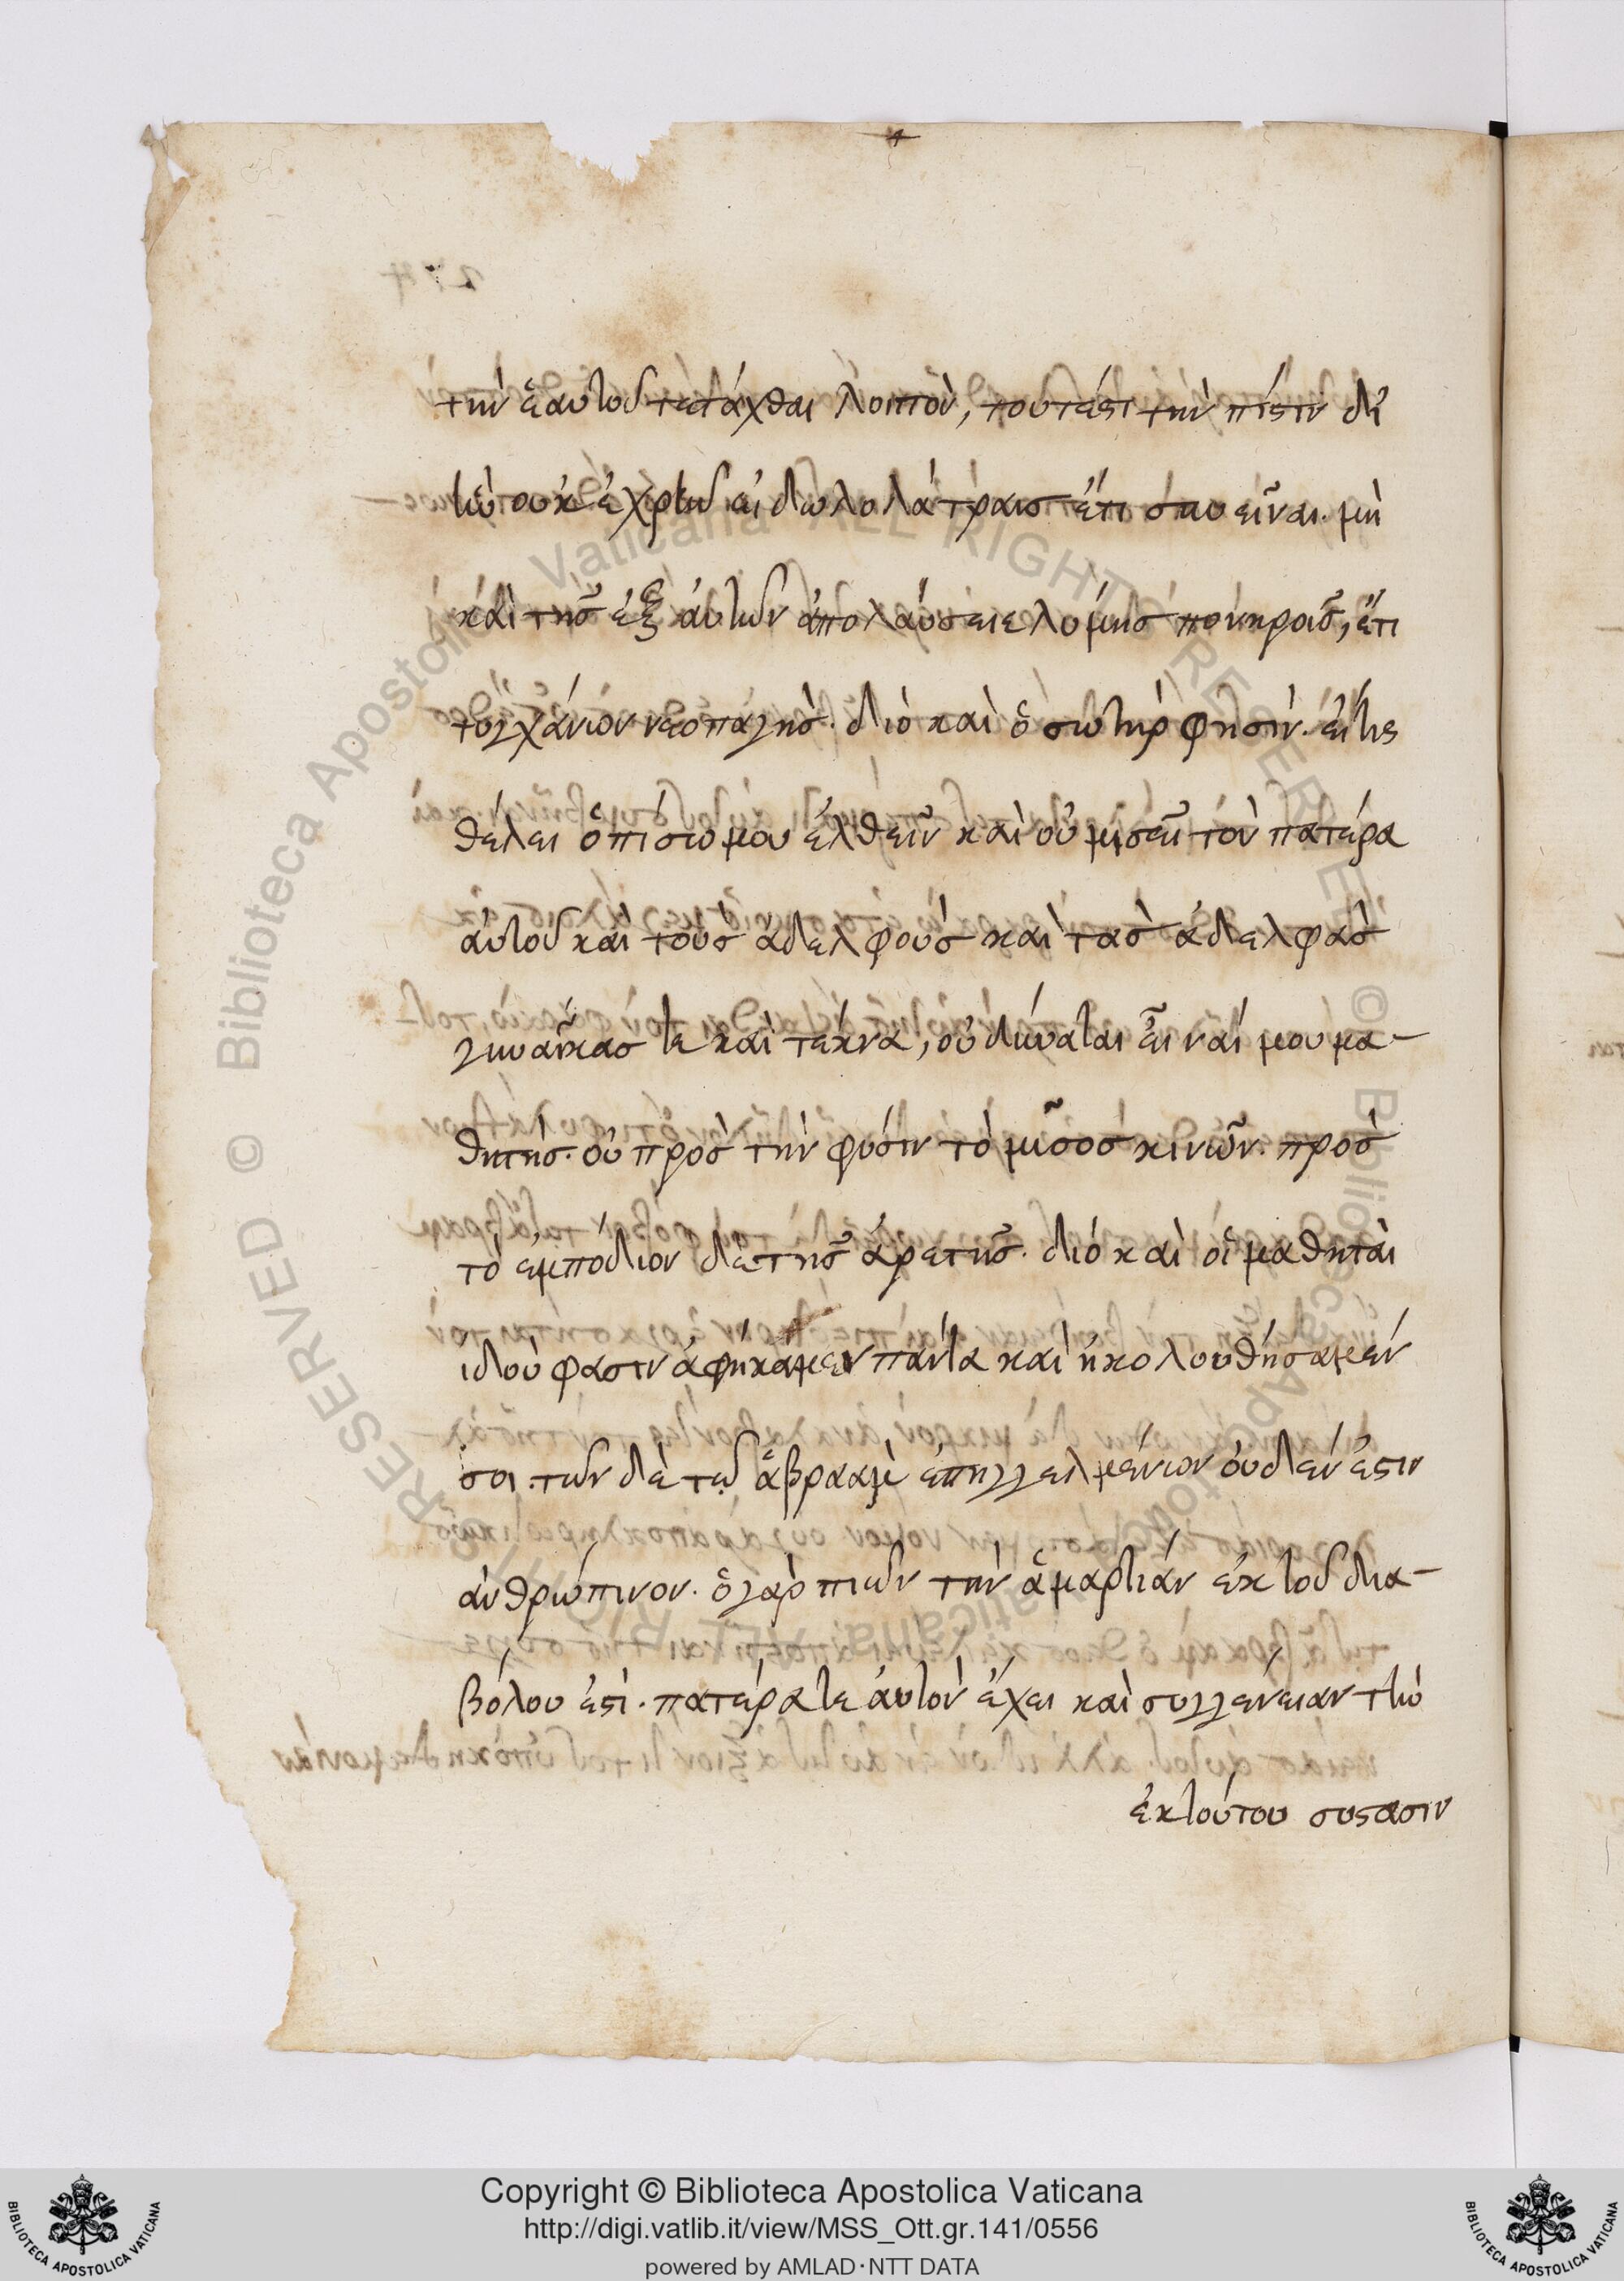 την ἑαυτοῦ τετάχθαι λοιπὸν, τουτέστι τὴν πίστιν δι'
ἣν οὐκ ἐχρῆν εἰδωλολάτραις ἔτι συνεῖναι. μὴ
καὶ τῆς ἐξ αὐτῶν ἀπολαύσειε λύμης πονηρᾶς, ἔτι
τυγχάνων νεοπαγὴς. διὸ καὶ ὁ σωτὴρ φησὶν. εἴ τις
θέλει ὀπίσω μου ἐλθεῖν καὶ οὐ μισεῖ τὸν πατέρα
αὐτοῦ καὶ τοὺς ἀδελφοὺς καὶ τὰς ἀδελφὰς
γυναῖκας τε καὶ τέκνα, οὐ δύναται εἶναί μου μα-
θητής. οὐ πρὸς τὴν φύσιν τὸ μῖσος κινῶν. πρὸς
τὸ ἐμπόδιον δὲ τῆς ἀρετῆς. διὸ καὶ οἱ μαθηταὶ
ἰδού φασιν ἀφήκαμεν πάντα καὶ ἠκολουθήσαμέν
σοι. τῶν δὲ τῷ ἁβραὰμ ἐπηγγελμένων οὐδέν ἐστιν
ἀνθρώπινον. ὁ γὰρ ποιῶν τὴν ἁμαρτίαν ἐκ τοῦ δια-
βόλου ἐστί. πατέρα τε αὐτὸν ἔχει καὶ συγγένειαν τὴν
ἐκ τούτου σύστασιν
Copyright © Biblioteca Apostolica Vaticana
http://digi.vatlib.it/view/MSS_Ott.gr.141/0556
powered by AMLAD·NTT DATA